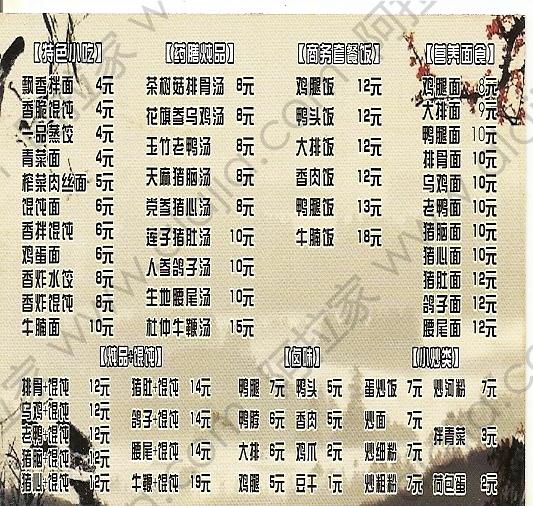 【特色小吃】
飘香拌面 4元
香脆馄饨 4元
一品蒸饺 4元
青菜面 4元
榨菜肉丝面 5元
馄饨面 6元
香拌馄饨 6元
鸡蛋面 6元
香炸水饺 8元
香炸馄饨 8元
牛腩面 10元
【药膳炖品】
茶树菇排骨汤 8元
花旗参乌鸡汤 8元
玉竹老鸭汤 8元
天麻猪脑汤 8元
党参猪心汤 8元
莲子猪肚汤 10元
人参鸽子汤 10元
生地腰尾汤 10元
杜仲牛鞭汤 15元
【商务套餐饭】
鸡腿饭 12元
鸭头饭 12元
大排饭 12元
香肉饭 12元
鸭腿饭 13元
牛腩饭 18元
【营养面食】
鸡腿面 8元
大排面 9元
鸭腿面 10元
排骨面 10元
乌鸡面 10元
老鸭面 10元
猪脑面 10元
猪心面 10元
猪肚面 12元
鸽子面 12元
腰尾面 12元
【炖品+馄饨】
排骨+馄饨 12元
乌鸡+馄饨 12元
老鸭+馄饨 12元
猪脑+馄饨 12元
猪心+馄饨 12元
猪肚+馄饨 14元
鸽子+馄饨 14元
腰尾+馄饨 14元
牛鞭+馄饨 19元
【卤味】
鸭腿 7元
鸭脖 6元
大排 6元
鸡腿 5元
鸭头 5元
香肉 5元
鸡爪 2元
豆干 1元
【小炒类】
蛋炒饭 7元
炒面 7元
炒细粉 7元
炒粗粉 7元
炒河粉 7元
拌青菜 3元
荷包蛋 2元
阿拉家 www.alajia.com